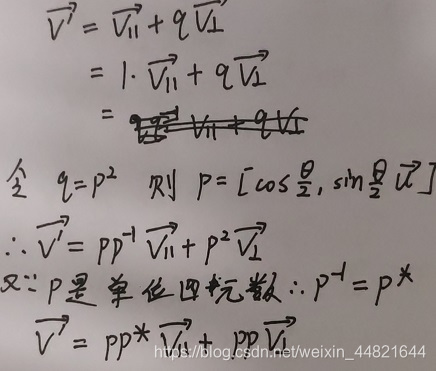 V⃗' = V⃗∥ + qV⃗⊥
= 1·V⃗∥ + qV⃗⊥
=
令 q=p² 则 p=[cos θ/2, sin θ/2 u⃗]
∴ V⃗' = pp⁻¹V⃗∥ + p²V⃗⊥
又∵ p是单位四元数 ∴ p⁻¹ = p*
V⃗' = pp*V⃗∥ + ppV⃗⊥
https://blog.csdn.net/weixin_44821644